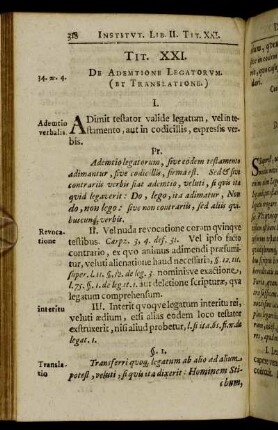 318 INSTITVT. LIB. II. TIT. XXI.
TIT. XXI.
34. n. 4. DE ADEMTIONE LEGATORVM.
(ET TRANSLATIONE.)
I.
Ademtio verbalis. ADimit testator valide legatum, vel in testamento, aut in codicillis, expressis verbis.
Pr.
Ademtio legatorum, sive eodem testamento
adimantur, sive codicillis, firma est. Sed & si
contrariis verbis fiat ademtio, veluti, si quis ita
quid legaverit: Do, lego, ita adimatur, Non
do, non lego: sive non contrariis, sed aliis qui-
buscunq; verbis.
Revoca- II. Vel nuda revocatione coram quinque
tione testibus. Carpz. 3, 4. def. 31. Vel ipso facto
contrario, ex quo animus adimendi præsumi-
tur, veluti alienatione haud necessaria, §. 12.
super. l. 11. §. 12. de leg. 3. nominisve exactione,
l. 75. §. 1. de leg. 1. aut deletione scripturæ, qua
legatum comprehensum.
interitu III. Interit quoque legatum interitu rei,
veluti ædium, etsi alias eodem loco testator
exstruxerit, nisi aliud probetur,
de
legat. 1.
§. 1.
Transla- Transferri quoq; legatum ab alio ad alium
tio potest, veluti, si quis ita dixerit: Hominem Sti-
chum,